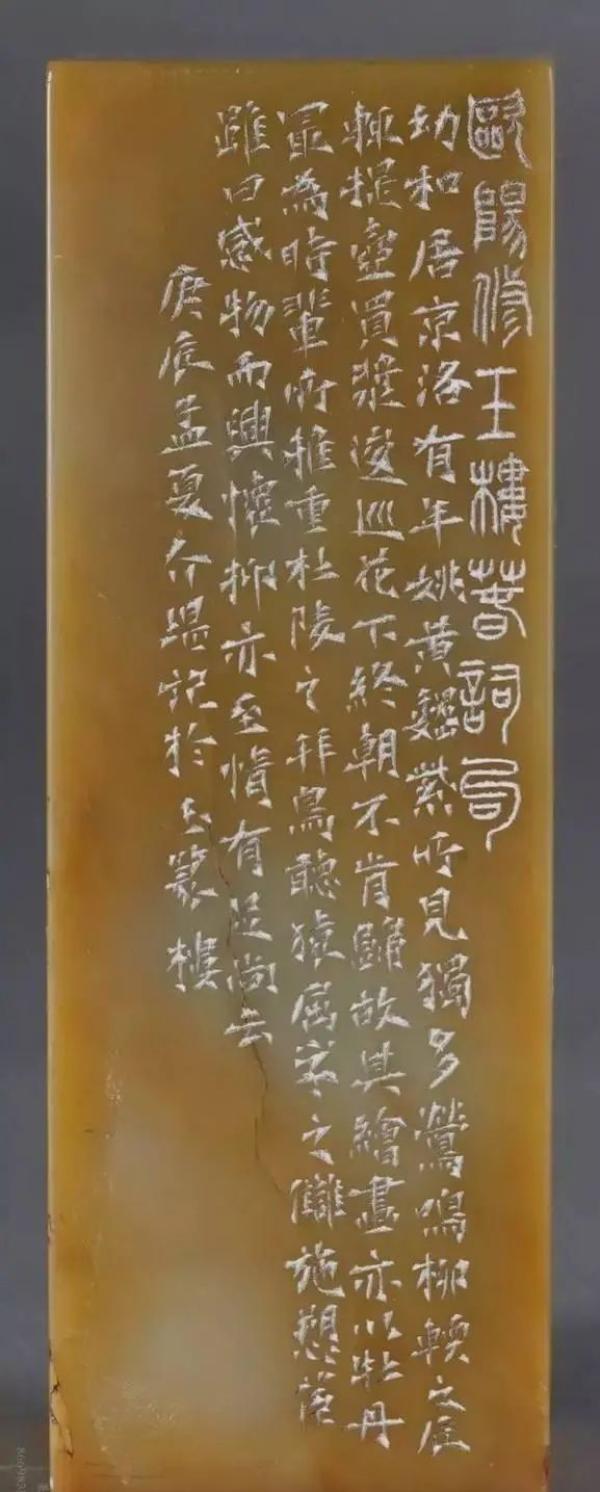 歐陽修玉樓春詞句
幼和居京洛有年姚黃魏紫所見獨多鶯鳴柳輭之
輒提壺買漿逡巡花下終朝不肯歸故其繪畫亦以牡丹
最為時輩所推重杜陵之拜鳥聽猿屈宋之讎施懟
雖曰感物而興懷抑亦至情有足尚云
庚辰孟夏介堪記於玉篆樓